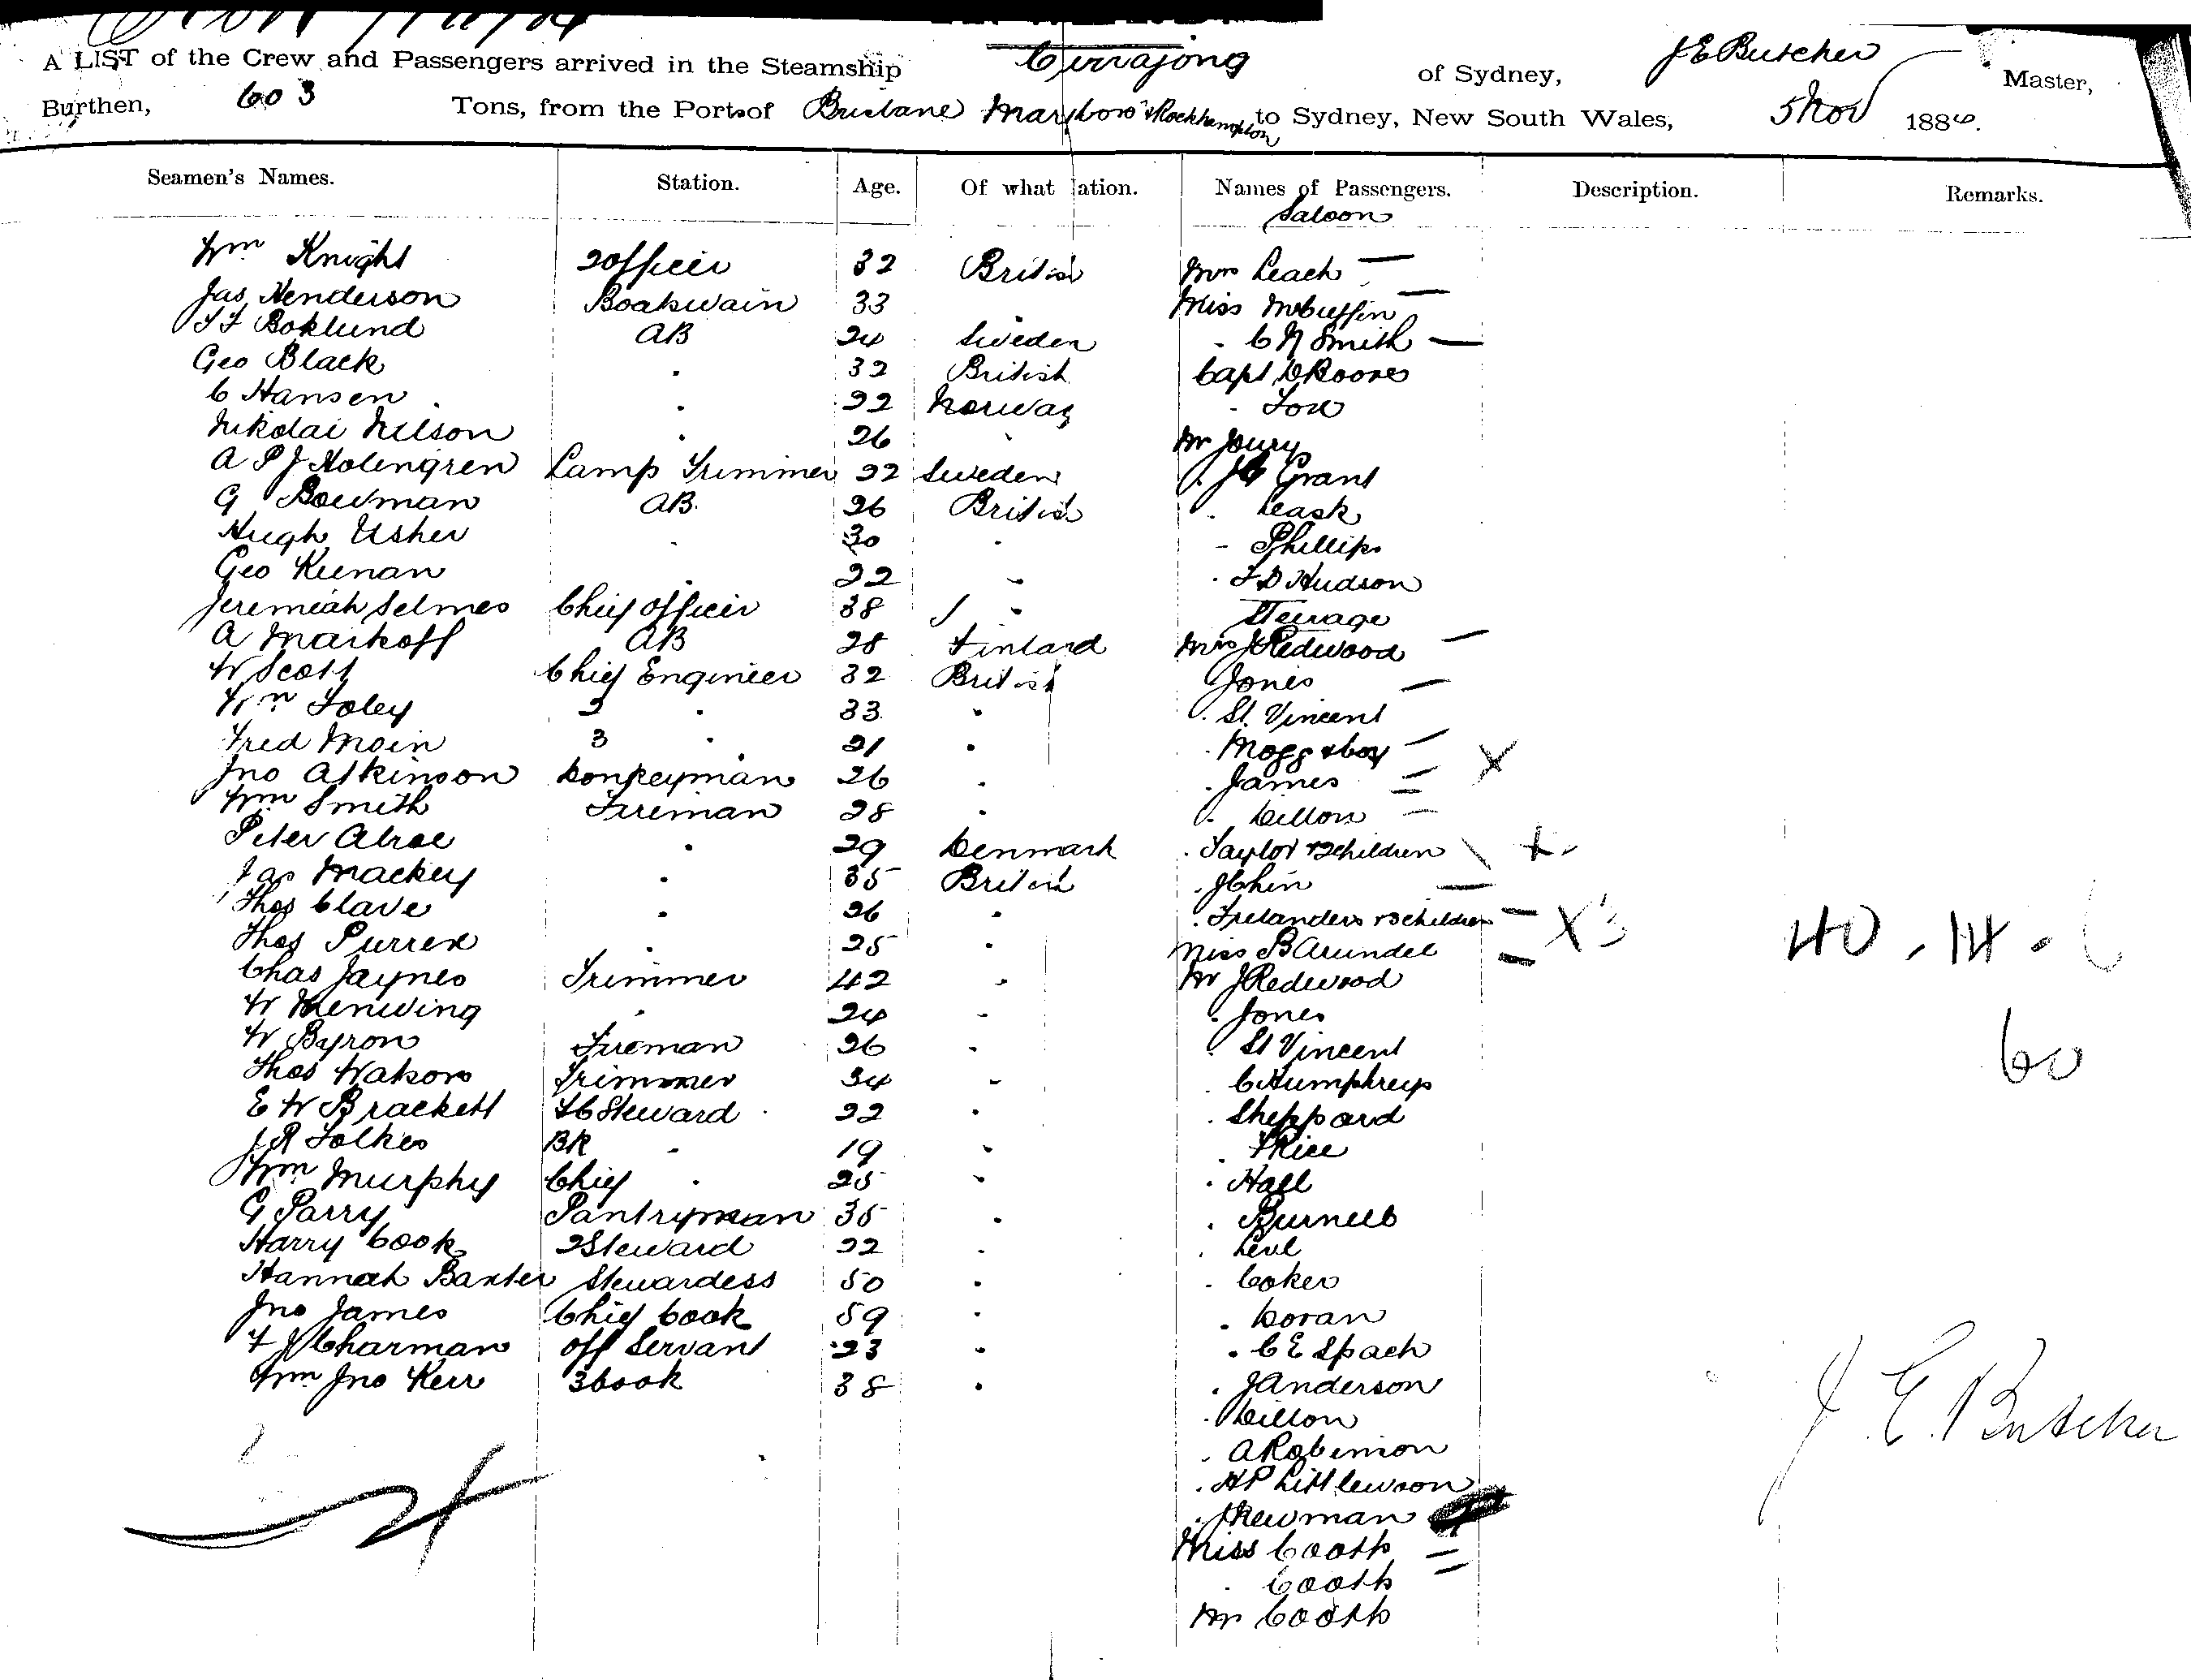 A LIST of the Crew and Passengers arrived in the Steamship Currajong of Sydney, J E Butcher Master,
Burthen, 603 Tons, from the Port of Brisbane Maryboro & Rockhampton to Sydney, New South Wales, 5 Nov 1884.
Seamen's Names. Station. Age. Of what ation. Names of Passengers. Description. Remarks.
Saloon
Wm Knight 2 Officer 32 British Mrs Leach
Jas Henderson Boatswain 33 Miss McGuffin
Boklund AB 24 Sweden " C N Smith
Geo Black " 32 British Capt
C Hansen " 22 Norway " Fox
Nikolai Nilson " 26 " Mr Joury
A P J Holmgren Lamp Trimmer 22 Sweden " J C Grant
G Bowman AB 26 British " Leask
Hugh Usher " 30 " " Phillips
Geo Keenan " 22 " " F D Hudson
Jeremiah Selmes Chief Officer 38 " Steerage
A Markoff AB 28 Finland Mrs J Redwood
W Scott Chief Engineer 32 British Jones
Wm Foley 2 " 33 " " St. Vincent
Fred Moin 3 " 21 " " Mogg & boy X
Jno Atkinson Donkeyman 26 " " James
Wm Smith Fireman 28 " " Dillon
Peter Alroe " 29 Denmark " Taylor & 2 children X
Jas Mackey " 35 British " J Chin
Thos Clave " 26 " " Irelanders & 3 children X3 40 . 14 . 6
Thos Purrer " 25 " Miss B Arundel
Chas Jaynes Trimmer 42 " Mr J Redwood
W " 24 " " Jones
W Byron Fireman 26 " " St Vincent 60
Thos Watson Trimmer 34 " " C Humphreys
E W Brackett Steward 22 " " Sheppard
J R Folkes BR " 19 " " F Rice
Wm Murphy Chief " 25 " " Hall
G Parry Pantryman 35 " " Burnell
Harry Cook 2 Steward 22 " "
Hannah Baxter Stewardess 50 " " Coker
Jno James Chief Cook 59 " " Doran
F J Charman Off Servant 23 " " C E Spach
Wm Jno Kerr 3 Cook 38 " " J Anderson
" Dillon
" A Robinson
" H P Littlewson
J E Butcher
" J Newman
Miss Booth
" Booth
Mr Booth